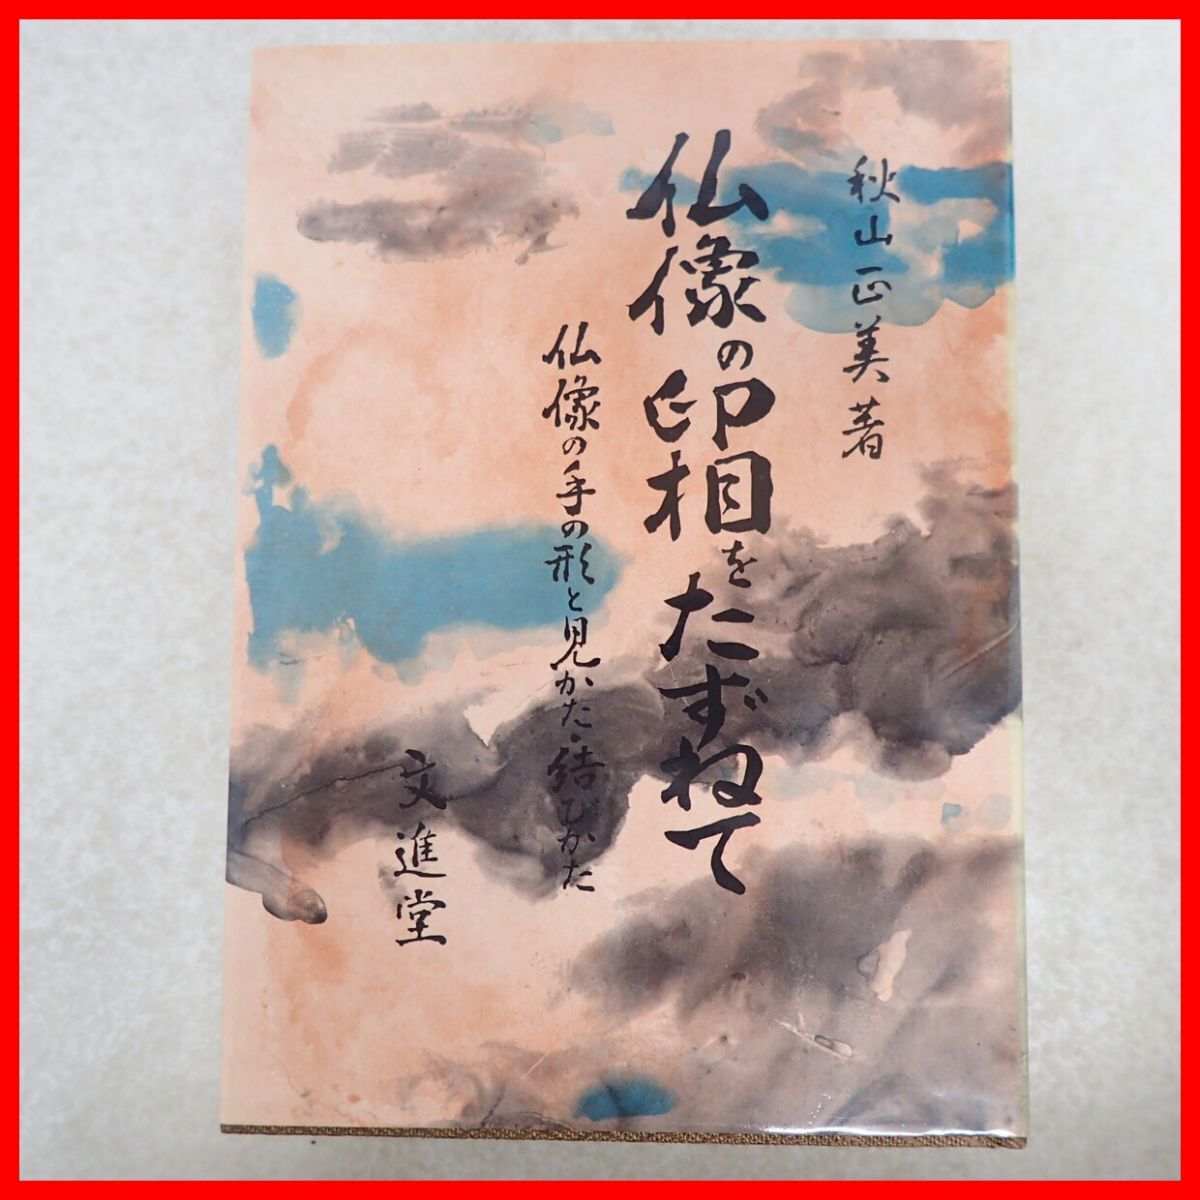 秋山正美著
仏像の印相をたずねて
仏像の手の形と見かた・結びかた
文進堂